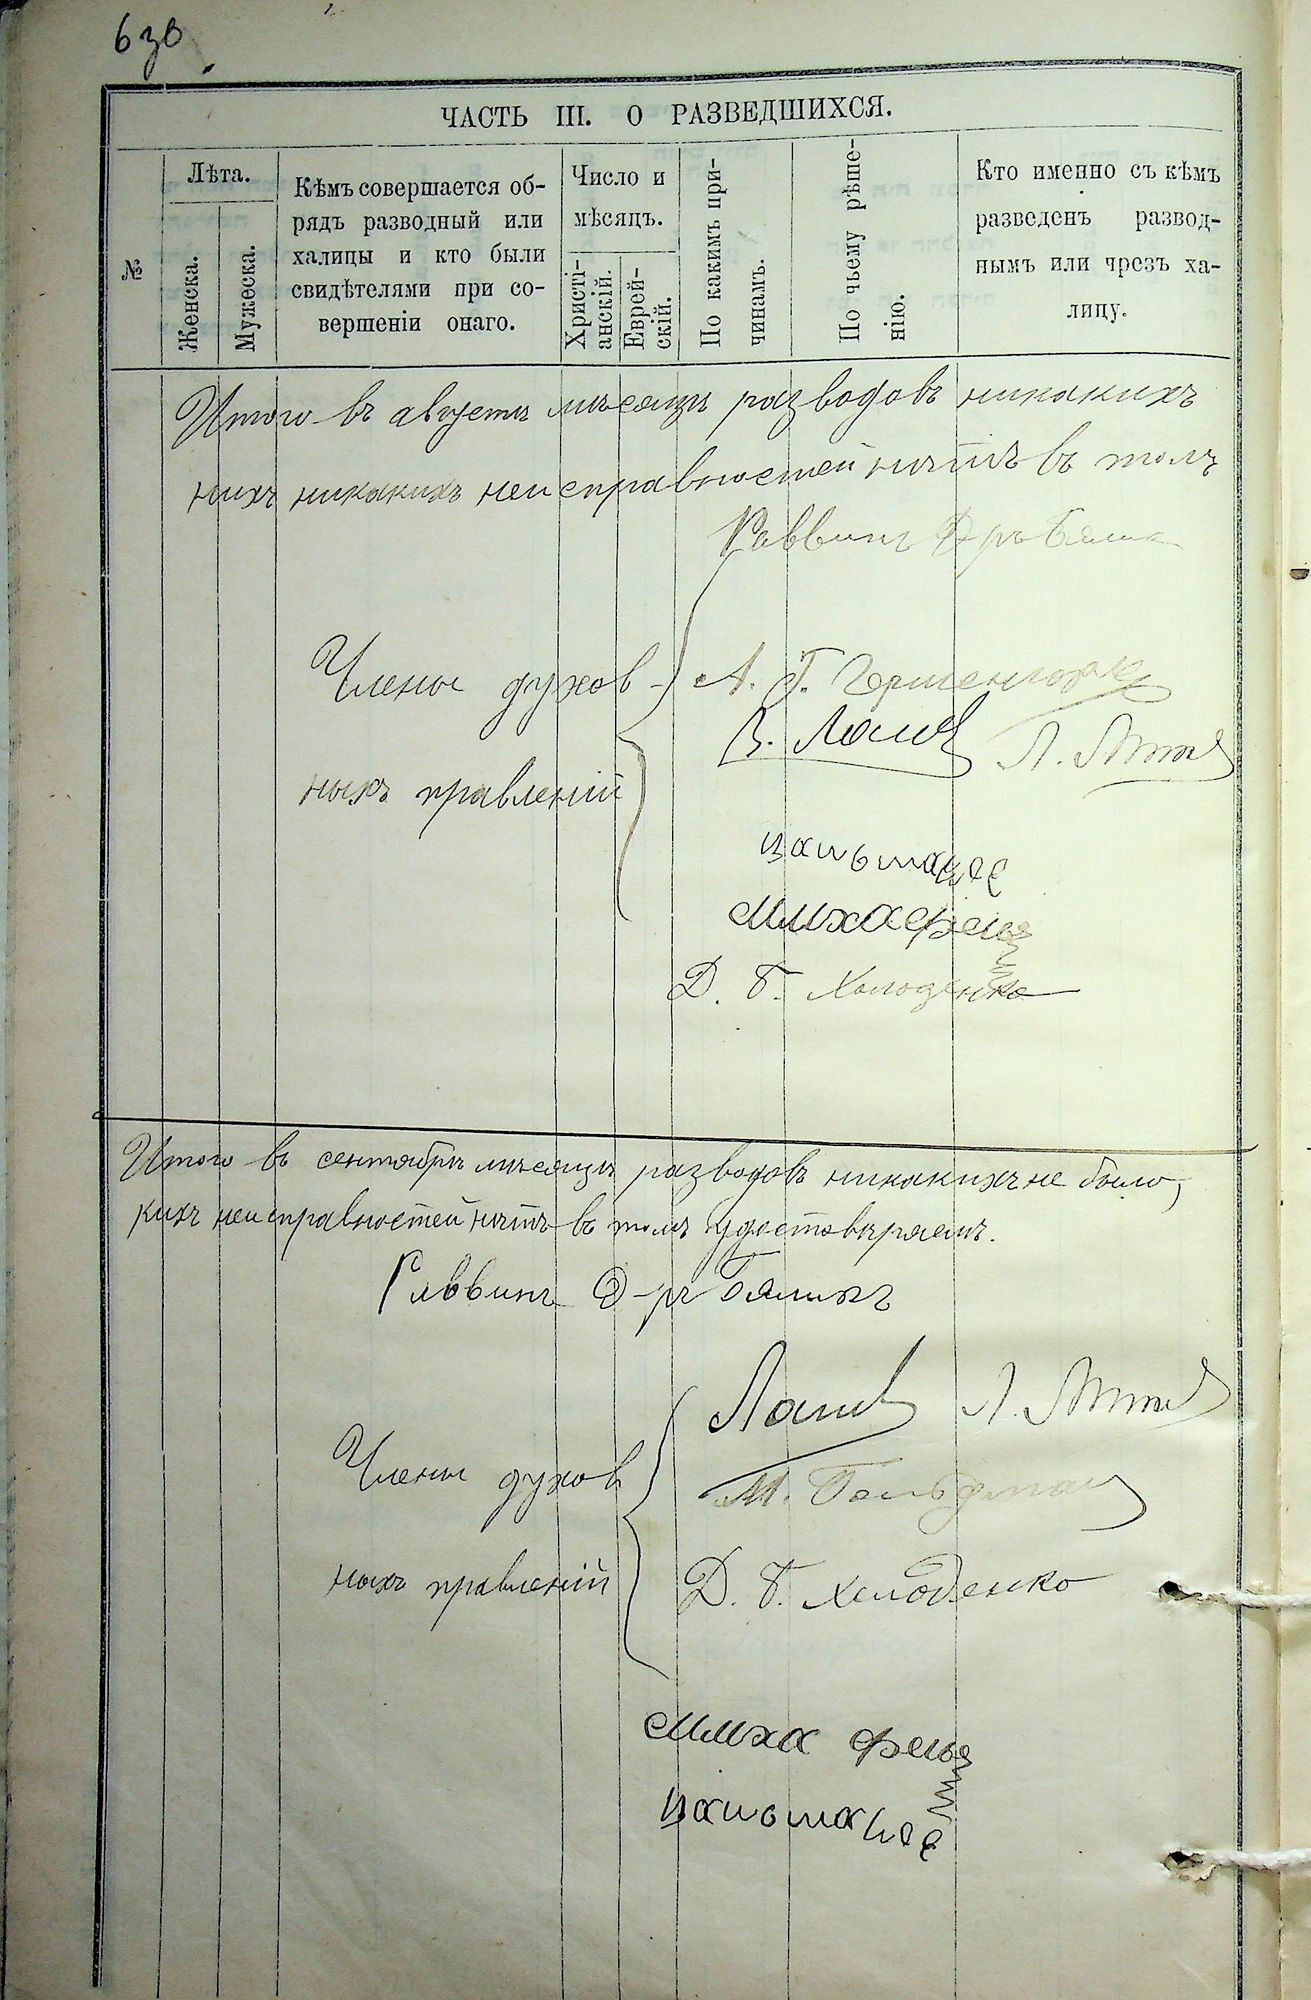 630
ЧАСТЬ III. О РАЗВЕДШИХСЯ.
№
Лѣта.
Женска.
Мужеска.
Кѣмъ совершается об-
рядъ разводный или
халицы и кто были
свидѣтелями при со-
вершеніи онаго.
Число и
мѣсяцъ.
Христі-
анскій.
Еврей-
скій.
По какимъ при-
чинамъ.
По чьему рѣше-
нію.
Кто именно съ кѣмъ
разведенъ развод-
нымъ или чрезъ ха-
лицу.
Итого въ августѣ мѣсяцѣ разводовъ никакихъ
никакихъ неисправностей нѣтъ въ томъ
Раввинъ Д-ръ
Члены духов-
ныхъ правленій
А. Г.
В.
Л.
Д. Б. Холоденко
Итого въ сентябрѣ мѣсяцѣ разводовъ никакихъ не было,
кихъ неисправностей нѣтъ въ томъ удостовѣряемъ.
Раввинъ Д-ръ
Л.
Члены духов
ныхъ правленій
М. Гольдман
Д. Б. Холоденко